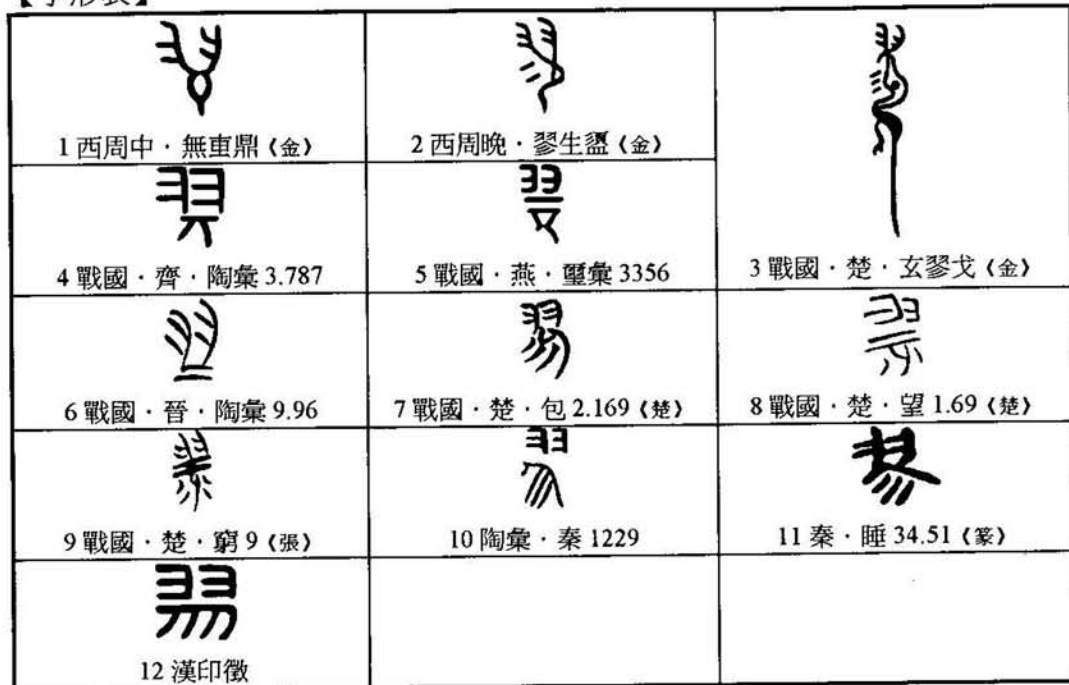 1 西周中·無叀鼎《金》
2 西周晚·翏生盨《金》
3 戰國·楚·玄翏戈《金》
4 戰國·齊·陶彙 3.787
5 戰國·燕·璽彙 3356
6 戰國·晉·陶彙 9.96
7 戰國·楚·包 2.169《楚》
8 戰國·楚·望 1.69《楚》
9 戰國·楚·窮 9《張》
10 陶彙·秦 1229
11 秦·睡 34.51《篆》
12 漢印徵